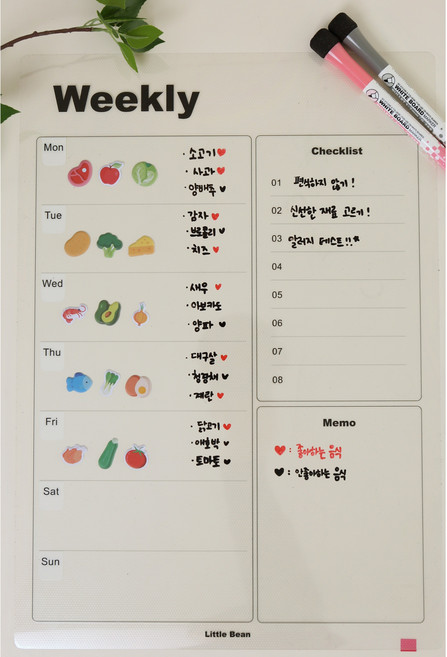 Weekly
Mon
· 소고기♥
· 사과♥
· 양배추♥
Tue
· 감자♥
· 브로콜리♥
· 치즈♥
Wed
· 새우♥
· 아보카도
· 양파♥
Thu
· 대구살♥
· 청경채♥
· 계란♥
Fri
· 닭고기♥
· 애호박♥
· 토마토♥
Sat
Sun
Checklist
01 편식하지 않기!
02 신선한 재료 고르기!
03 알러지 테스트!!*
04
05
06
07
08
Memo
♥ : 좋아하는 음식
♥ : 안좋아하는 음식
Little Bean
WHITE BOARD
WHITE BOARD